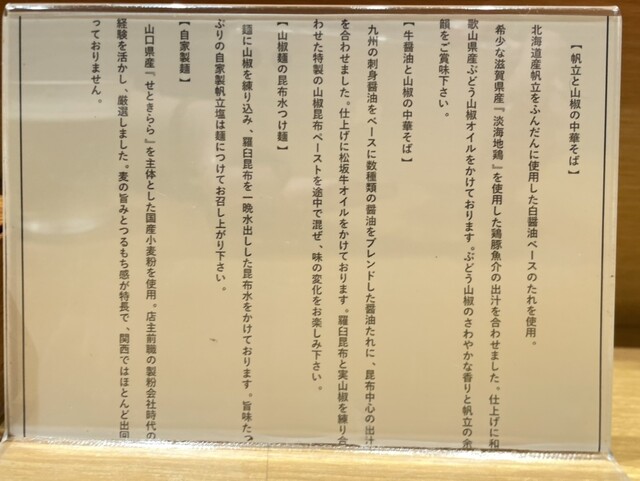 【帆立と山椒の中華そば】
北海道産帆立をふんだんに使用した白醤油ベースのたれを使用。
希少な滋賀県産『淡海地鶏』を使用した鶏豚魚介の出汁を合わせました。仕上げに和
歌山県産ぶどう山椒オイルをかけております。ぶどう山椒のさわやかな香りと帆立の余
韻をご賞味下さい。
【牛醤油と山椒の中華そば】
九州の刺身醤油をベースに数種類の醤油をブレンドした醤油たれに、昆布中心の出汁
を合わせました。仕上げに松坂牛オイルをかけております。羅臼昆布と実山椒を練り合
わせた特製の山椒昆布ペーストを途中で混ぜ、味の変化をお楽しみ下さい。
【山椒麺の昆布水つけ麺】
麺に山椒を練り込み、羅臼昆布を一晩水出しした昆布水をかけております。旨味たっ
ぷりの自家製帆立塩は麺につけてお召し上がり下さい。
【自家製麺】
山口県産『せときらら』を主体とした国産小麦粉を使用。店主前職の製粉会社時代の
経験を活かし、厳選しました。麦の旨みとつるもち感が特長で、関西ではほとんど出回
っておりません。